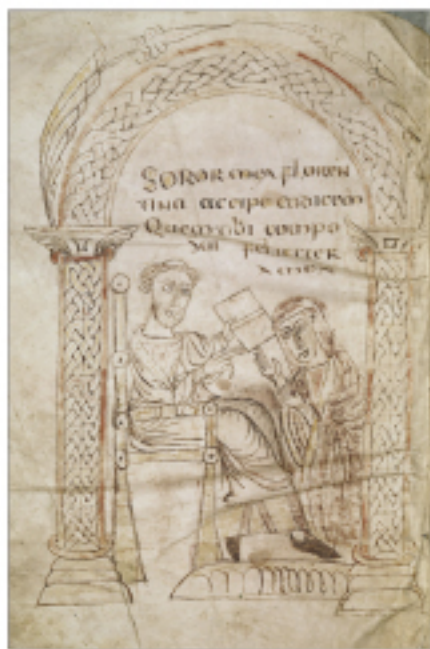 SOROR mea floren
tina accipe codicem
Quem tibi compo
sui feliciter
amen